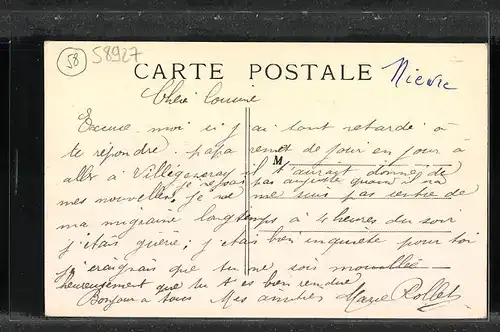 58
58927
CARTE POSTALE
Nievre
Chère Cousine
Excuse moi si j'ai tant retardé à
te répondre. papa remet de jour en jour à
M
aller à Villégenray il t'aurait donner de
je ne sais pas au juste quand il ira
mes nouvelles. je ne me suis pas sentie de
ma migraine longtemps à 4 heures du soir
j'étais guérie; j'étais bien inquiète pour toi
je craignais que tu ne sois mouillée
heureusement que tu t es bien rendue
Bonjour à tous Mes amitiés Marie Rollet